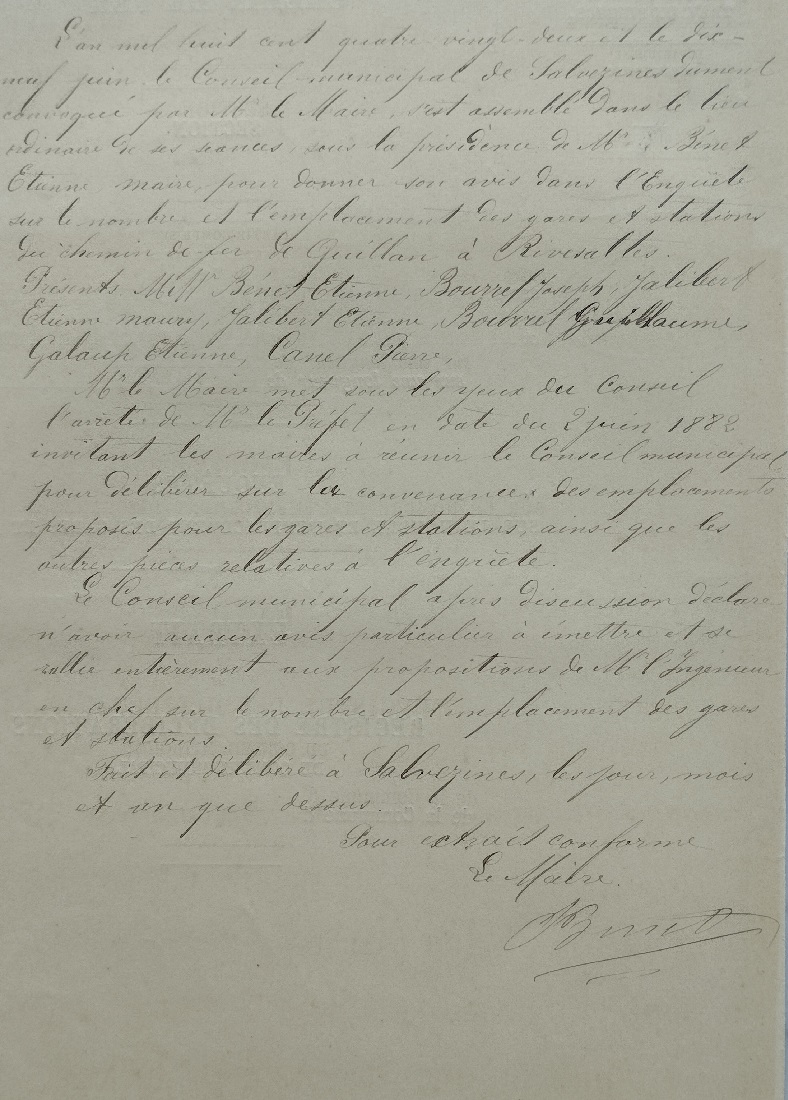 L'an mil huit cent quatre-vingt-deux et le dix-
neuf juin, le Conseil municipal de Salvezines dument
convoqué par Mr le Maire, s'est assemblé dans le lieu
ordinaire de ses séances, sous la présidence de Mr Bénet
Etienne, maire, pour donner son avis dans l'Enquête
sur le nombre et l'emplacement des gares et stations
du chemin de fer de Quillan à Rivesaltes.
Présents MMrs Bénet Etienne, Bourrel Joseph, Jalibert
Etienne maury, Jalibert Etienne, Bourrel Guillaume,
Galaup Etienne, Canel Pierre,
Mr le Maire met sous les yeux du Conseil
l'arrêté de Mr le Préfet en date du 2 juin 1882
invitant les maires à réunir le Conseil municipal
pour délibérer sur les convenances des emplacements
proposés pour les gares et stations, ainsi que les
autres pièces relatives à l'enquête.
Le Conseil municipal après discussion déclare
n'avoir aucun avis particulier à émettre et se
rallie entièrement aux propositions de Mr l'Ingénieur
en chef sur le nombre et l'emplacement des gares
et stations.
Fait et délibéré à Salvezines, les jour, mois
et an que dessus.
Pour extrait conforme
Le Maire.
Benet